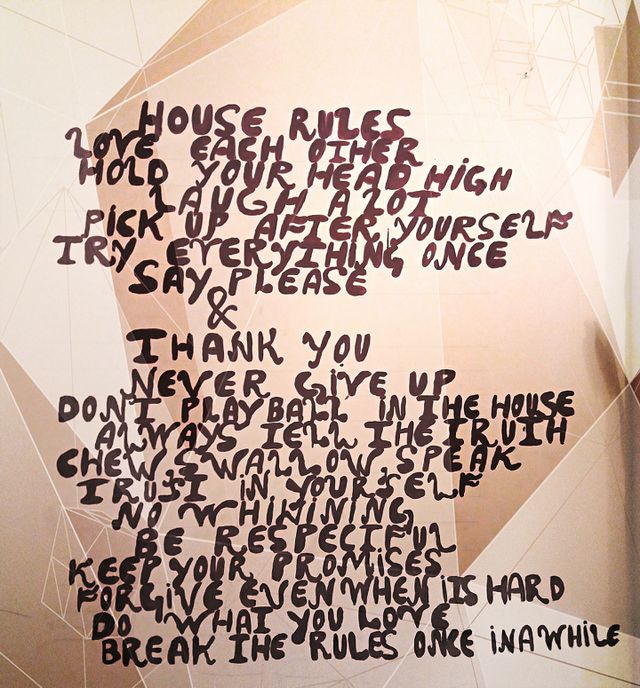 HOUSE RULES
LOVE EACH OTHER
HOLD YOUR HEAD HIGH
LAUGH ALOT
PICK UP AFTER YOURSELF
TRY EVERYTHING ONCE
SAY PLEASE
&
THANK YOU
NEVER GIVE UP
DON'T PLAY BALL IN THE HOUSE
ALWAYS TELL THE TRUTH
CHEW, SWALLOW, SPEAK
TRUST IN YOURSELF
NO WHINING
BE RESPECTFUL
KEEP YOUR PROMISES
FORGIVE EVEN WHEN ITS HARD
DO WHAT YOU LOVE
BREAK THE RULES ONCE IN A WHILE